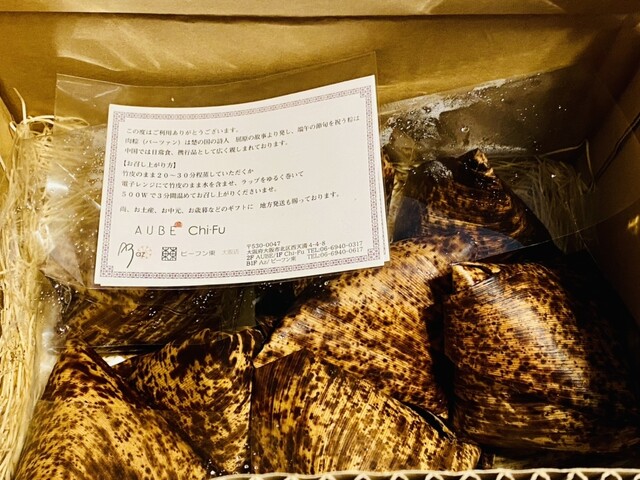 この度はご利用ありがとうございます。
肉粽（バーツァン）は楚の国の詩人　屈原の故事より発し、端午の節句を祝う粽は
中国では日常食、携行品として広く親しまれております。
【お召し上がり方】
竹皮のまま２０～３０分程蒸していただくか
電子レンジにて竹皮のまま水を含ませ、ラップをゆるく巻いて
５００Ｗで３分間温めてお召し上がりくださいませ。
尚、お土産、お中元、お歳暮などのギフトに　地方発送も賜っております。
AUBE Chi-Fu
az ビーフン東 大阪店
〒530-0047
大阪府大阪市北区西天満4-4-8
2F AUBE/1F Chi-Fu TEL:06-6940-0317
B1F Az/ビーフン東 TEL:06-6940-0617